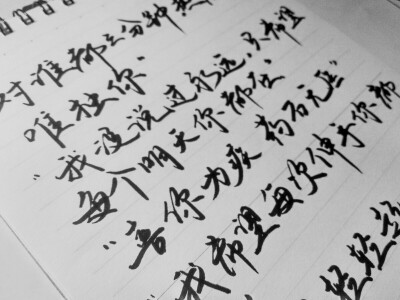 对谁都三分钟热
唯独你.
"我没说过永远,只希望
每个明天你都在
"喜你为疾,药石无医"
我希望每次伸手你都
轻轻